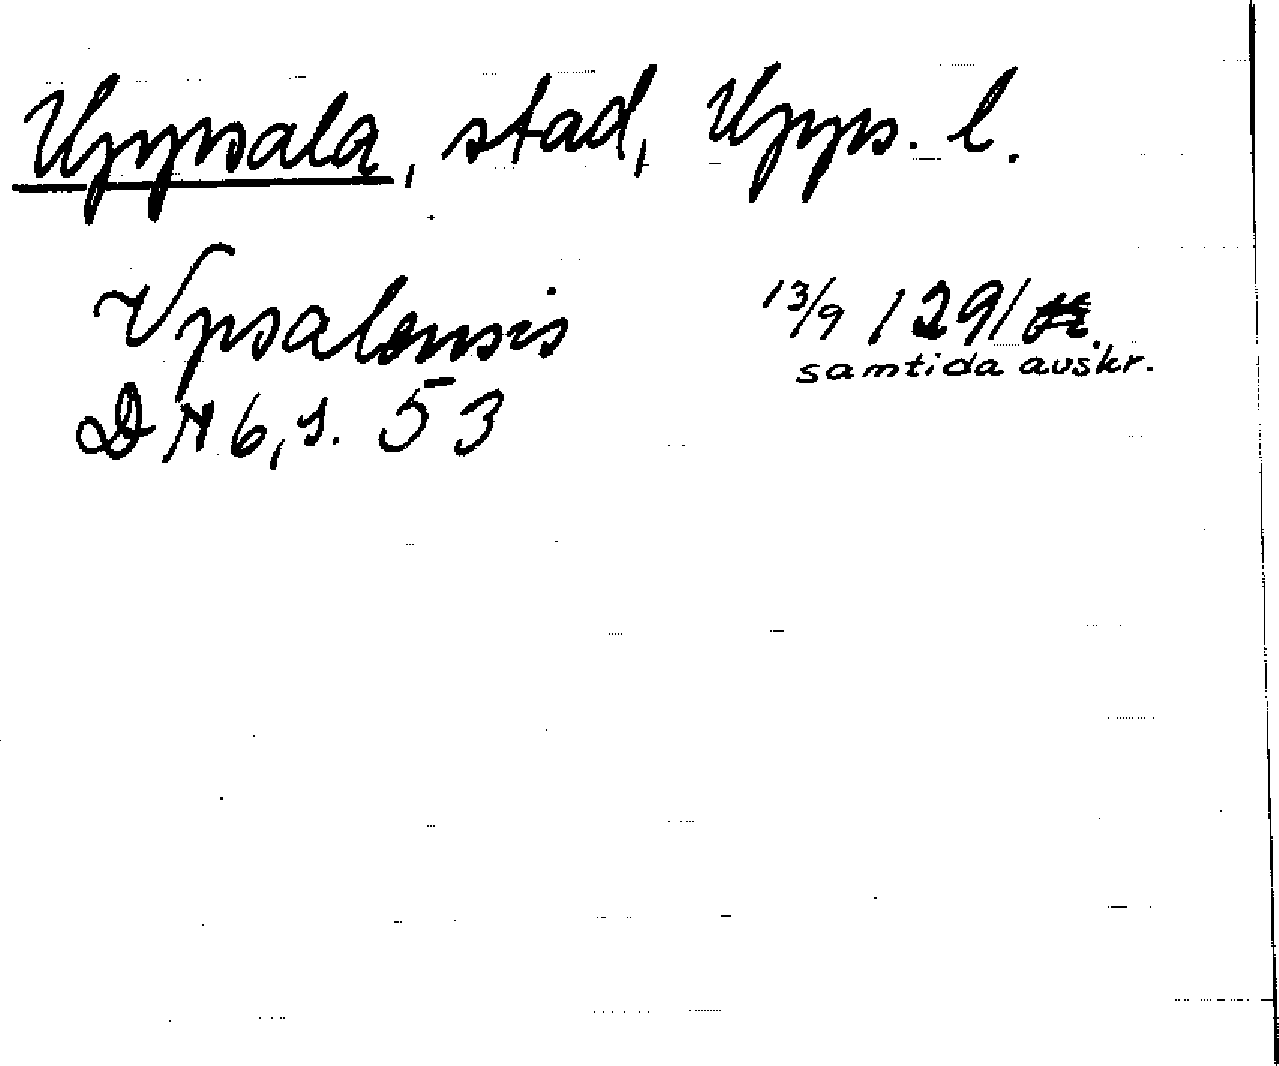 Uppsala, stad, Upps. l.
Vpsalensis 13/9 1291
samtida avskr.
DN 6, s. 53